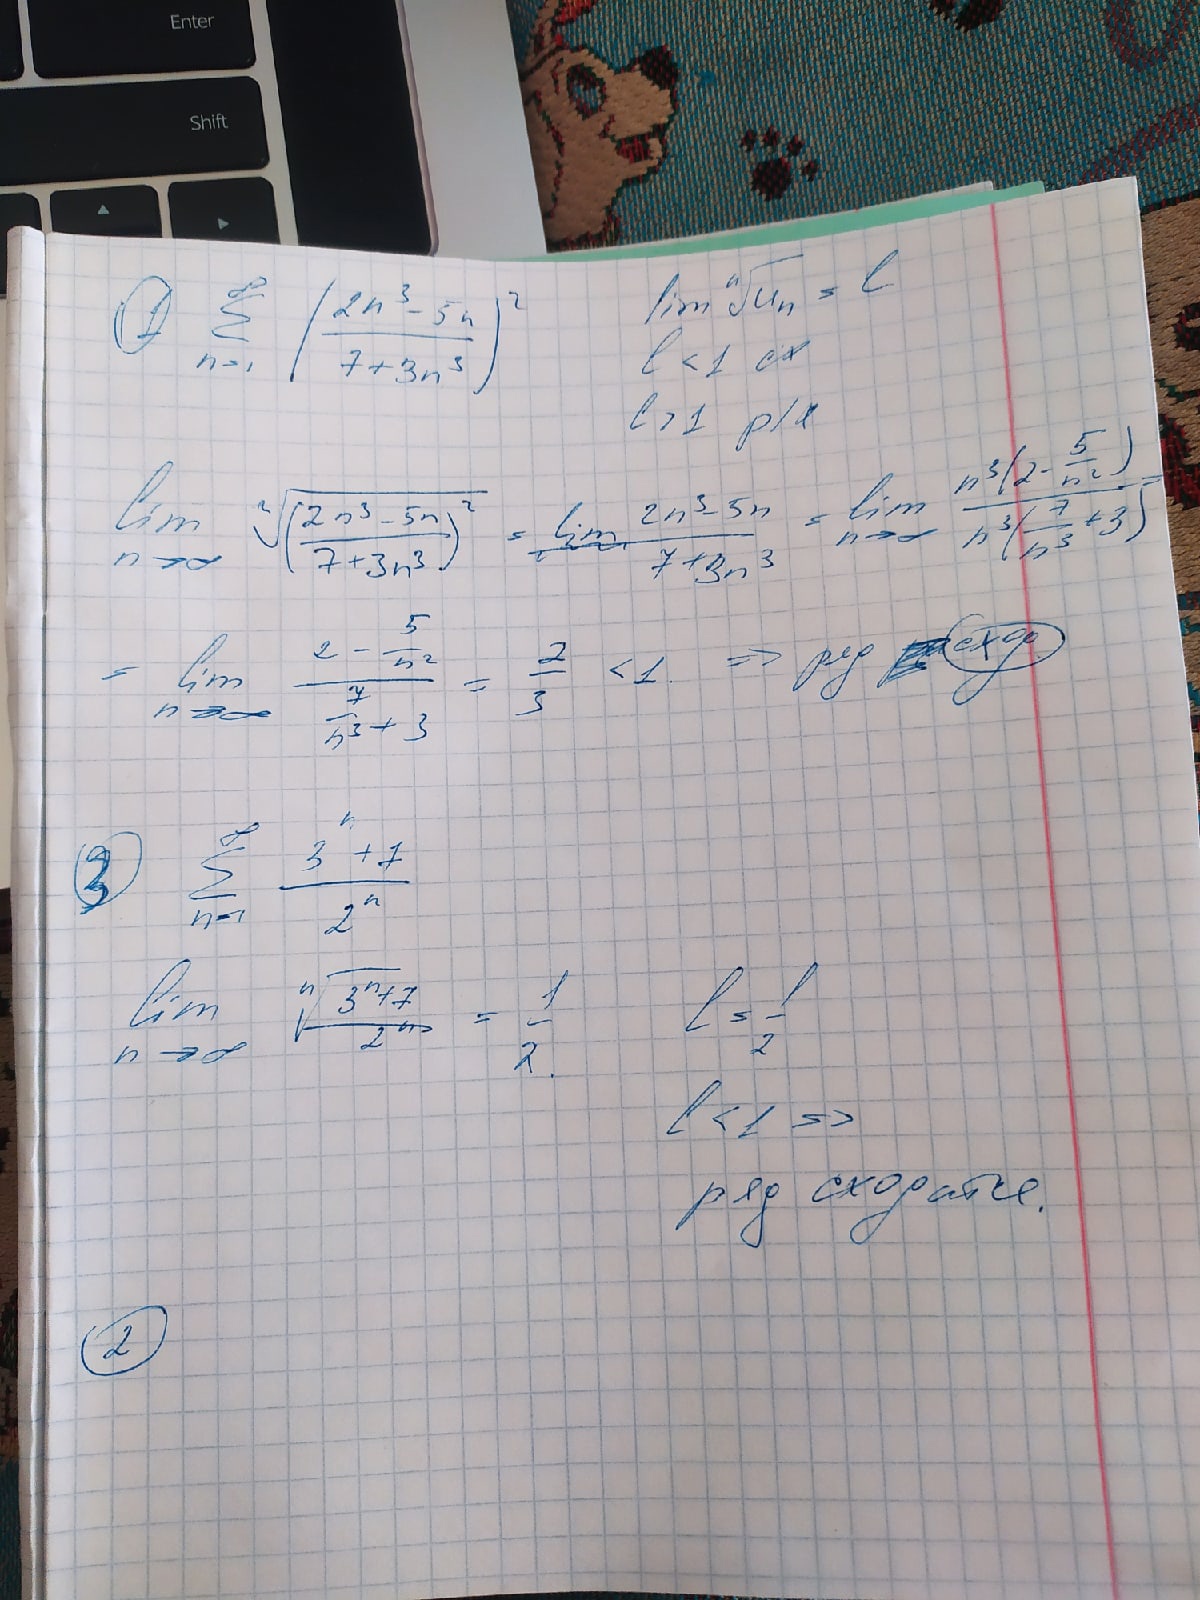 Enter
Shift
① ∞ Σ n=1 ( (2n³ - 5n) / (7 + 3n³) )²
lim ⁿ√Uₙ = l
l < 1 сх
l > 1 р/х
lim n→∞ ²√( (2n³ - 5n) / (7 + 3n³) )² = lim (2n³ - 5n) / (7 + 3n³) = lim n→∞ n³(2 - 5/n²) / n³(7/n³ + 3) =
= lim n→∞ (2 - 5/n²) / (7/n³ + 3) = 2/3 < 1. => ряд сходс
③ ∞ Σ n=1 (3ⁿ + 7) / 2ⁿ
lim n→∞ ⁿ√(3ⁿ + 7) / 2ⁿ = 1/2. l = 1/2
l < 1 =>
ряд сходится.
②